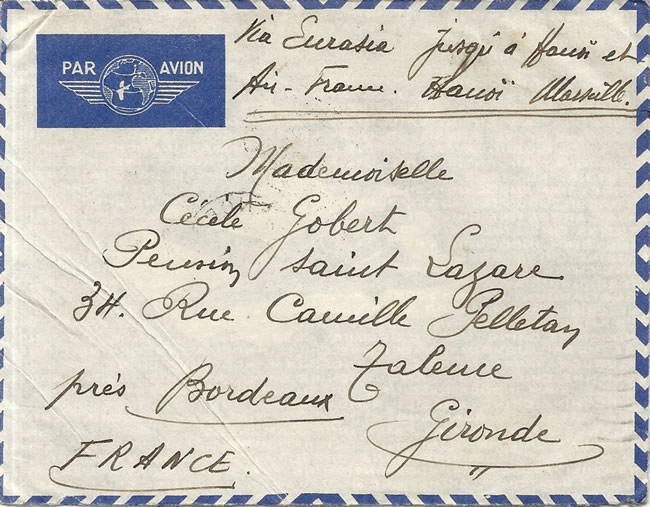 PAR AVION
Via Eurasia jusqu'à Hanoï et
Air-France. Hanoï Marseille.
Mademoiselle
Cécile Gobert
Pension Saint Lazare
34. Rue Camille Pelletan
Talence
près Bordeaux
Gironde
FRANCE.